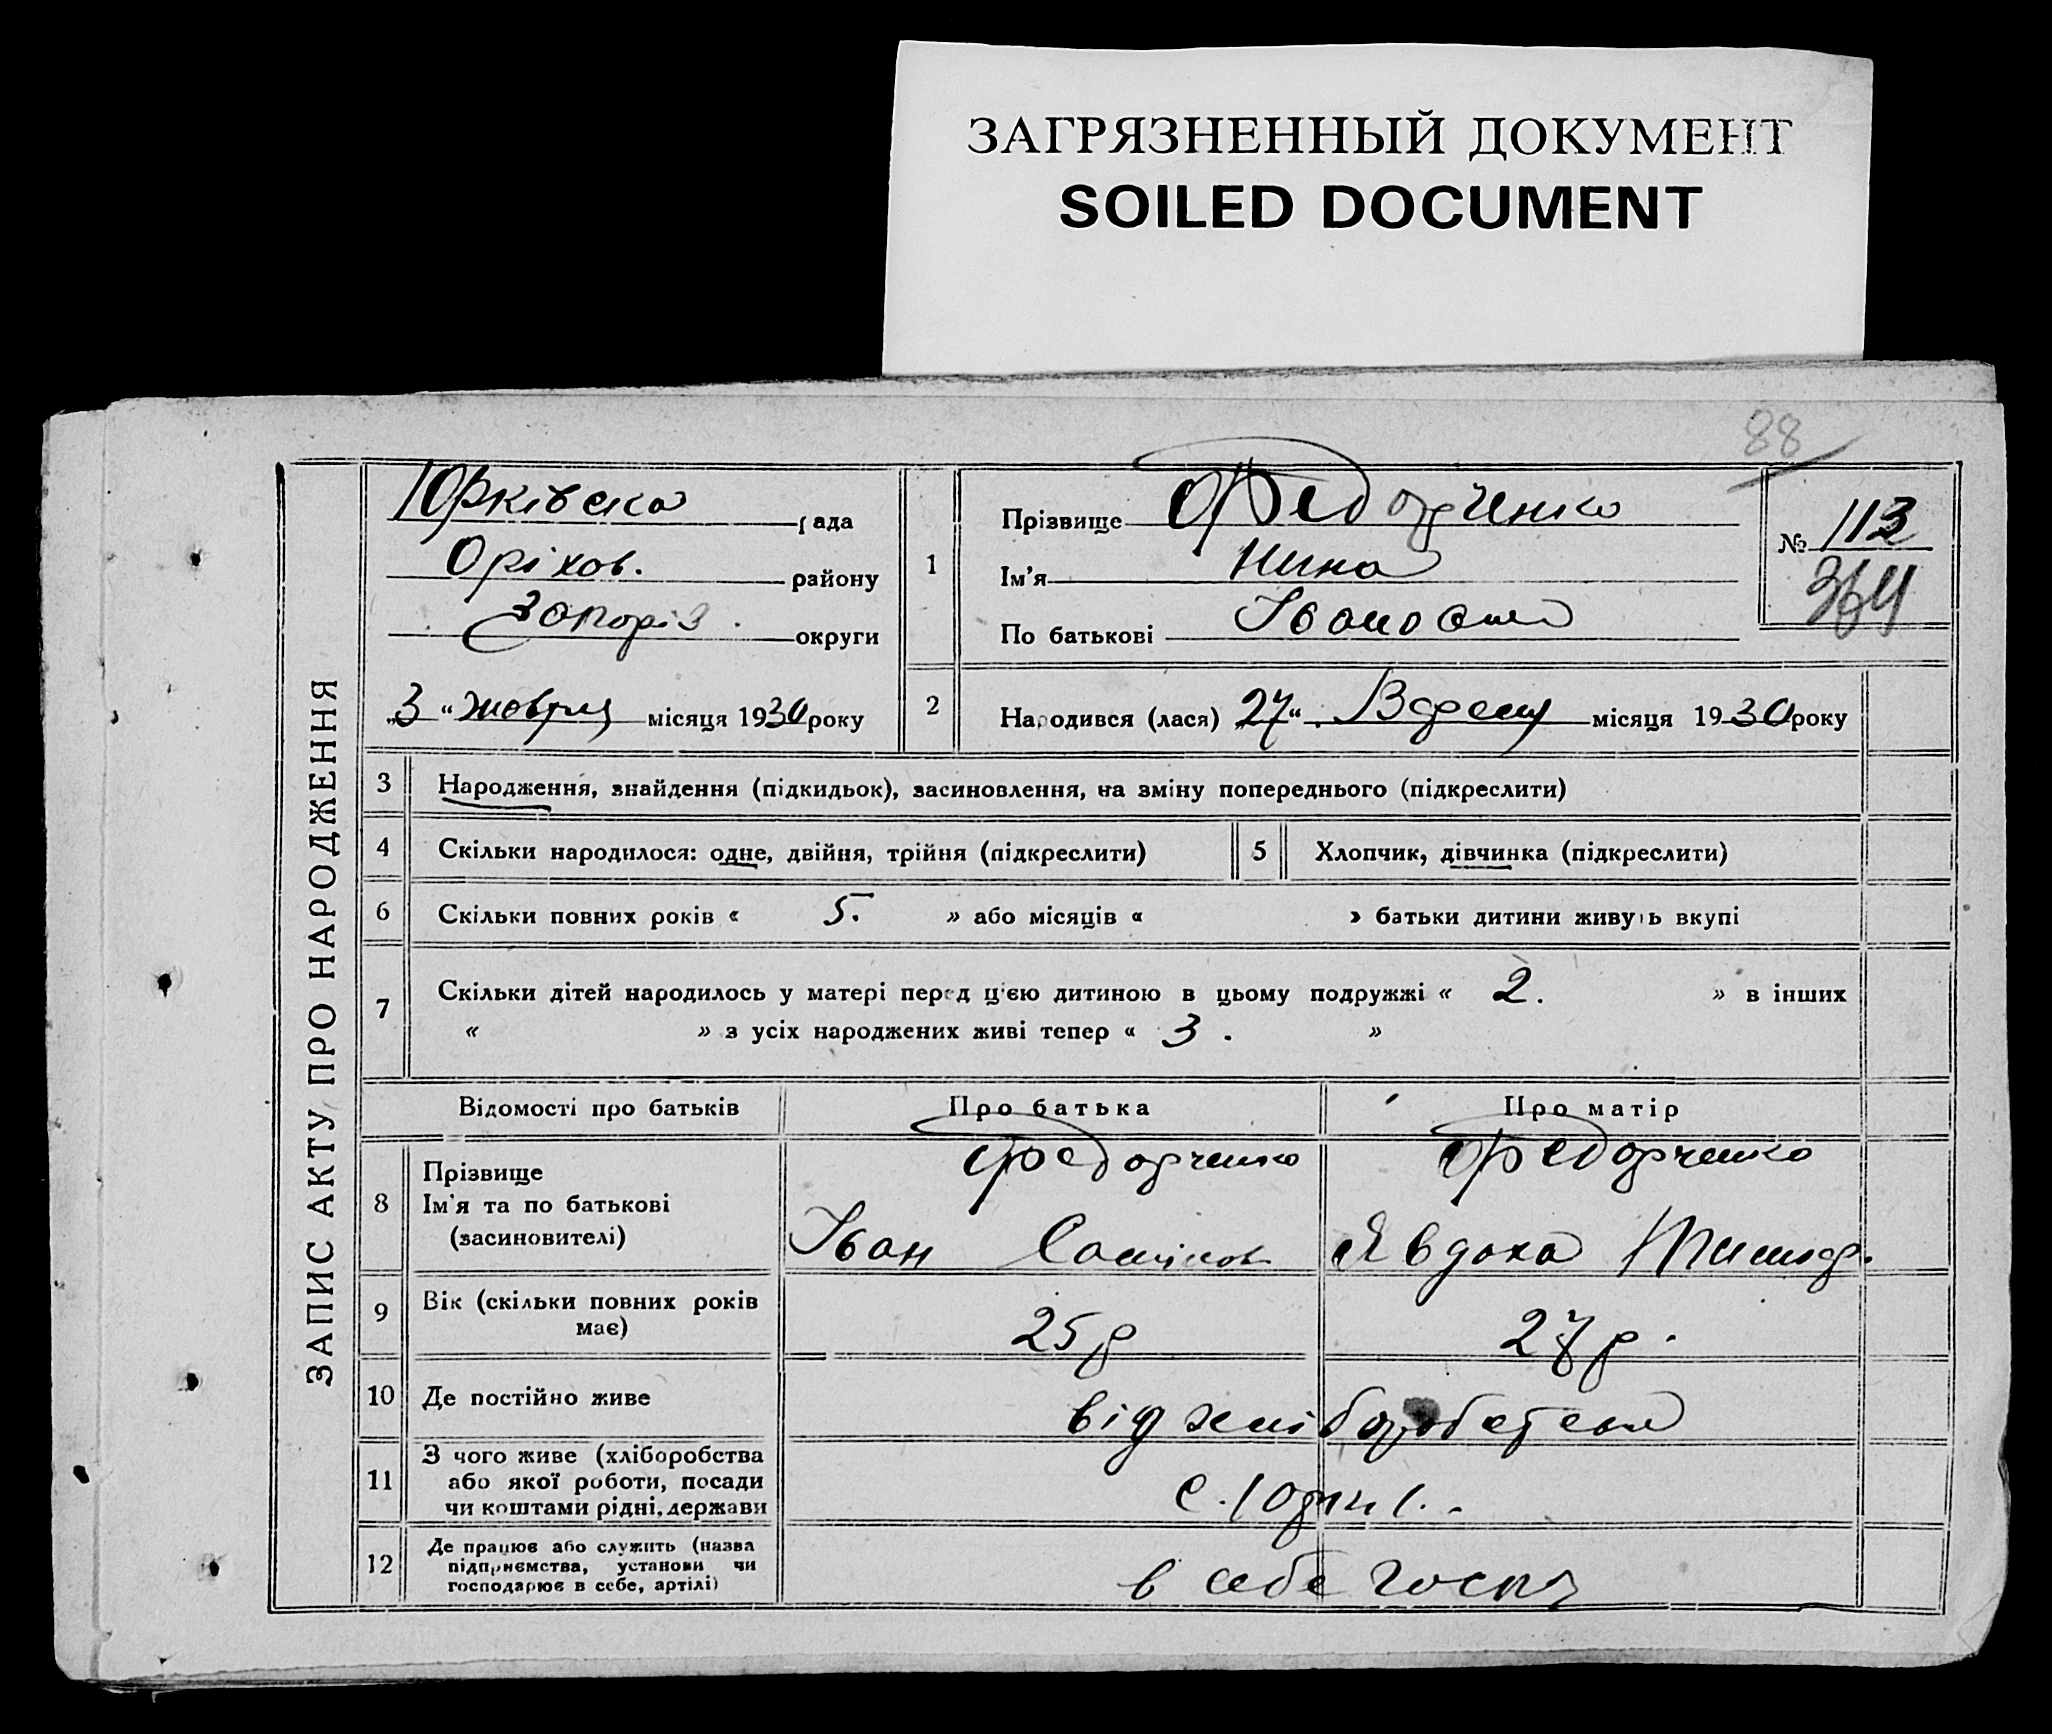 ЗАГРЯЗНЕННЫЙ ДОКУМЕНТ
SOILED DOCUMENT
88
ЗАПИС АКТУ ПРО НАРОДЖЕННЯ
Юрківска рада
Оріхов. району
Запоріз. округи
„3“ жовтня місяця 1930 року
1
Прізвище Федорченко
Ім'я Нина
По батькові Івановна
№ 113
364
2
Народився (лася) 27“ Вересня місяця 1930 року
3 Народження, знайдення (підкидьок), засиновлення, на зміну попереднього (підкреслити)
4 Скільки народилося: одне, двійня, трійня (підкреслити) 5 Хлопчик, дівчинка (підкреслити)
6 Скільки повних років « 5. » або місяців « » батьки дитини живуть вкупі
7 Скільки дітей народилось у матері перед цією дитиною в цьому подружжі « 2. » в інших
« » з усіх народжених живі тепер « 3. »
Відомості про батьків Про батька Про матір
8 Прізвище Федорченко Федорченко
Ім'я та по батькові Іван Явдоха
(засиновителі)
9 Вік (скільки повних років має) 25 р 27 р.
10 Де постійно живе від хліборобства
11 З чого живе (хліборобства
або якої роботи, посади
чи коштами рідні, держави
с.
12 Де працює або служить (назва
підприємства, установи чи
господарює в себе, артілі)
в себе госп